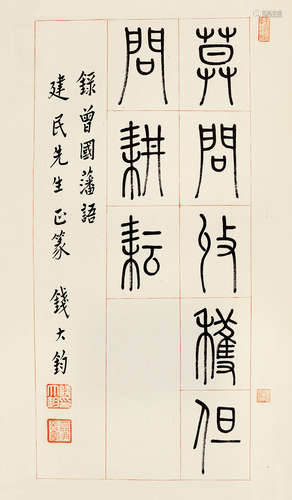 莫問收穫但
問耕耘
錄曾國藩語
建民先生正篆 錢大鈞